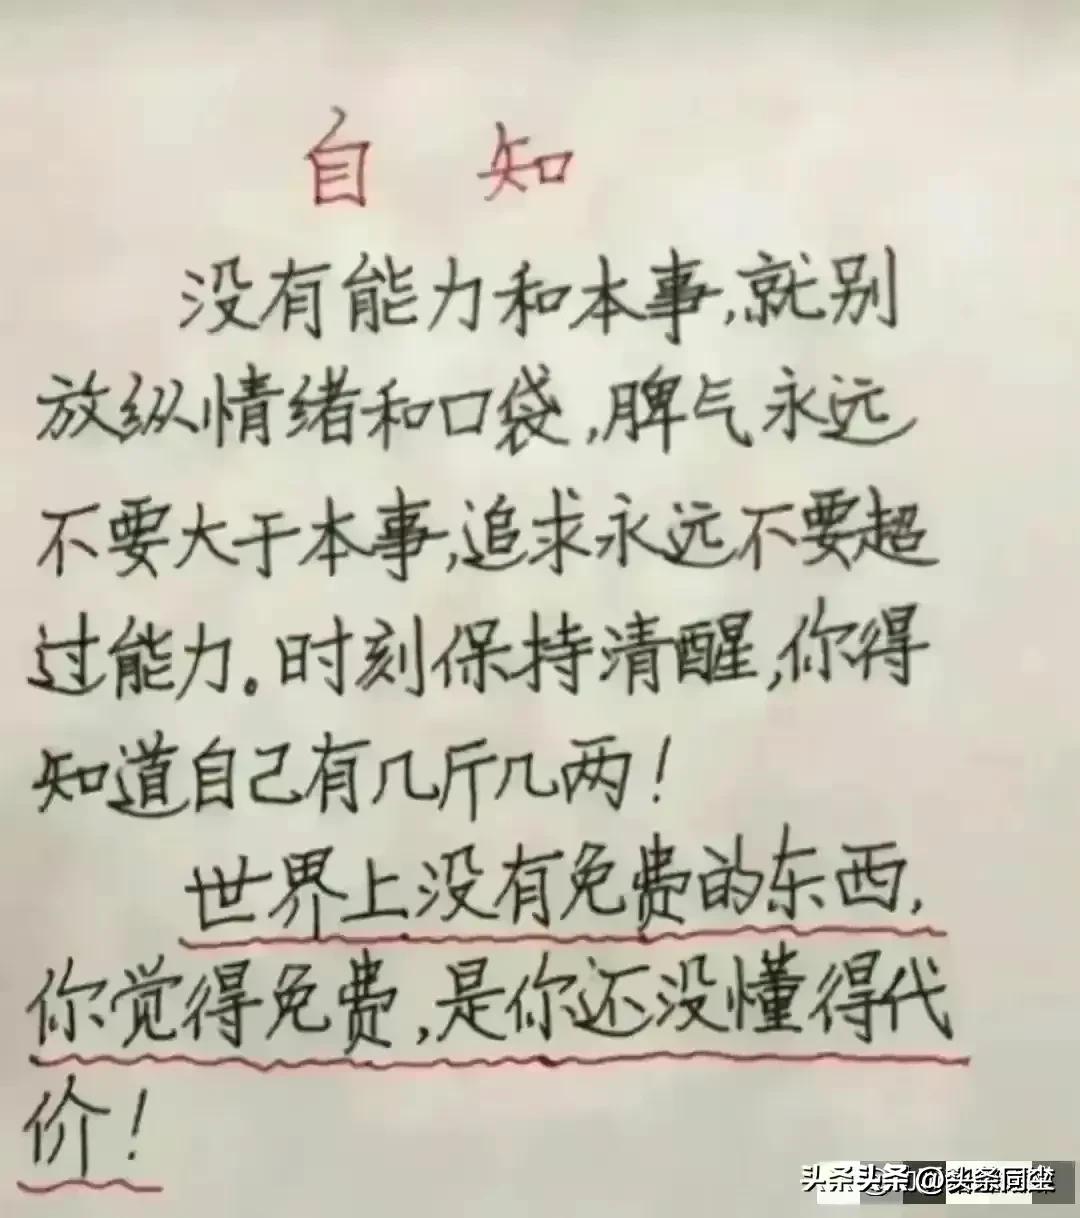 自 知
没有能力和本事,就别
放纵情绪和口袋,脾气永远
不要大于本事,追求永远不要超
过能力。时刻保持清醒,你得
知道自己有几斤几两!
世界上没有免费的东西,
你觉得免费,是你还没懂得代
价!
头条头条 @头条同坐